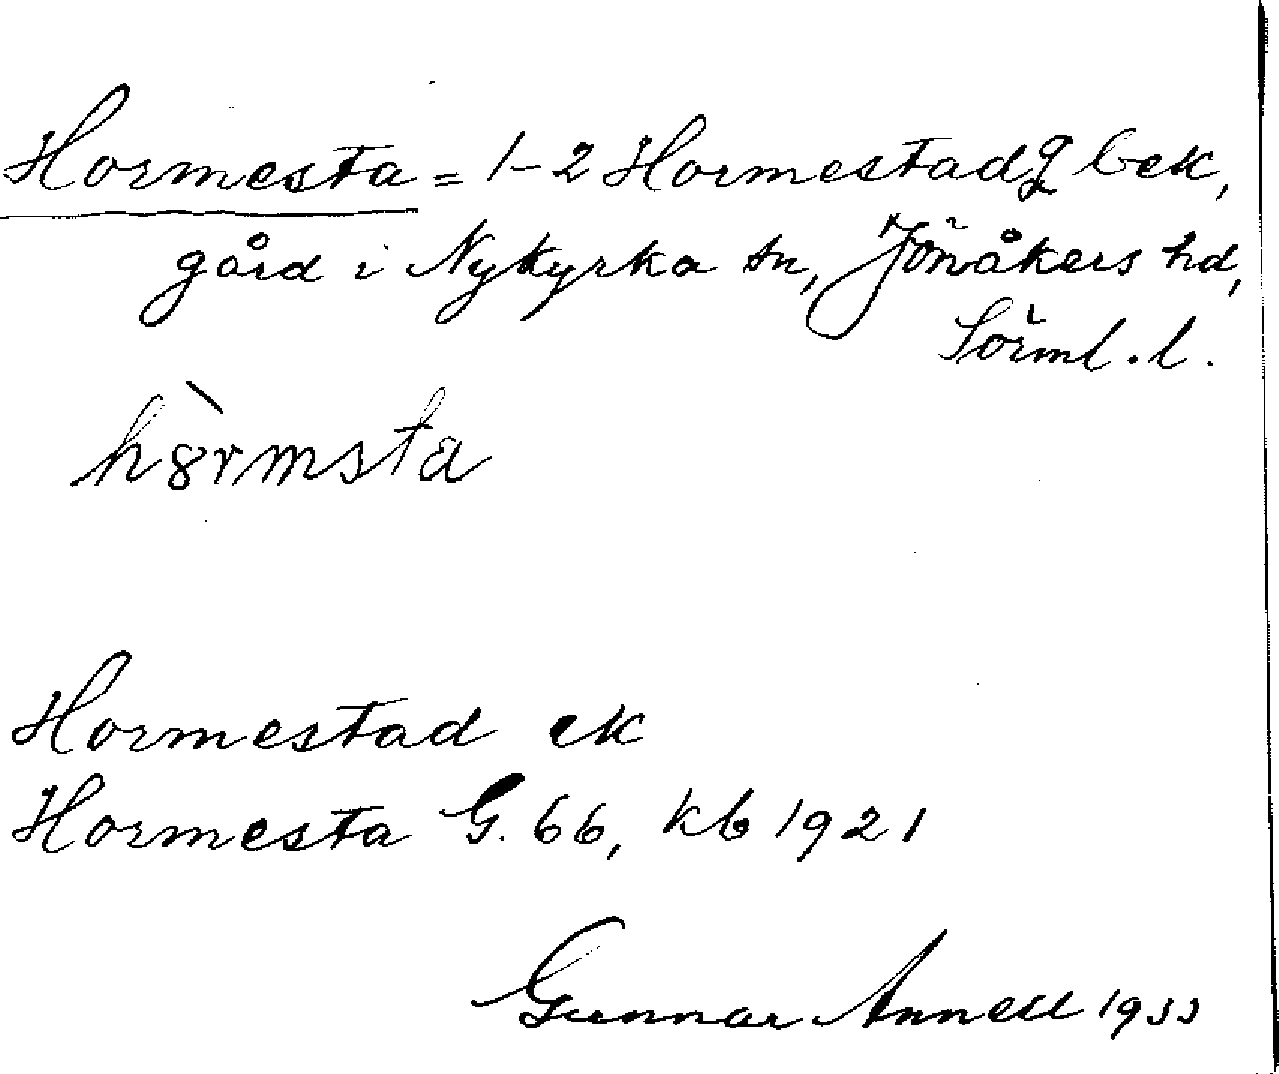 Hormesta = 1-2 Hormestad bek,
gård i Nykyrka sn, Jönåkers hd,
Sörml. l.
Hormestad ek
Hormesta G. 66, kb 1921
Gunnar Annell 1933